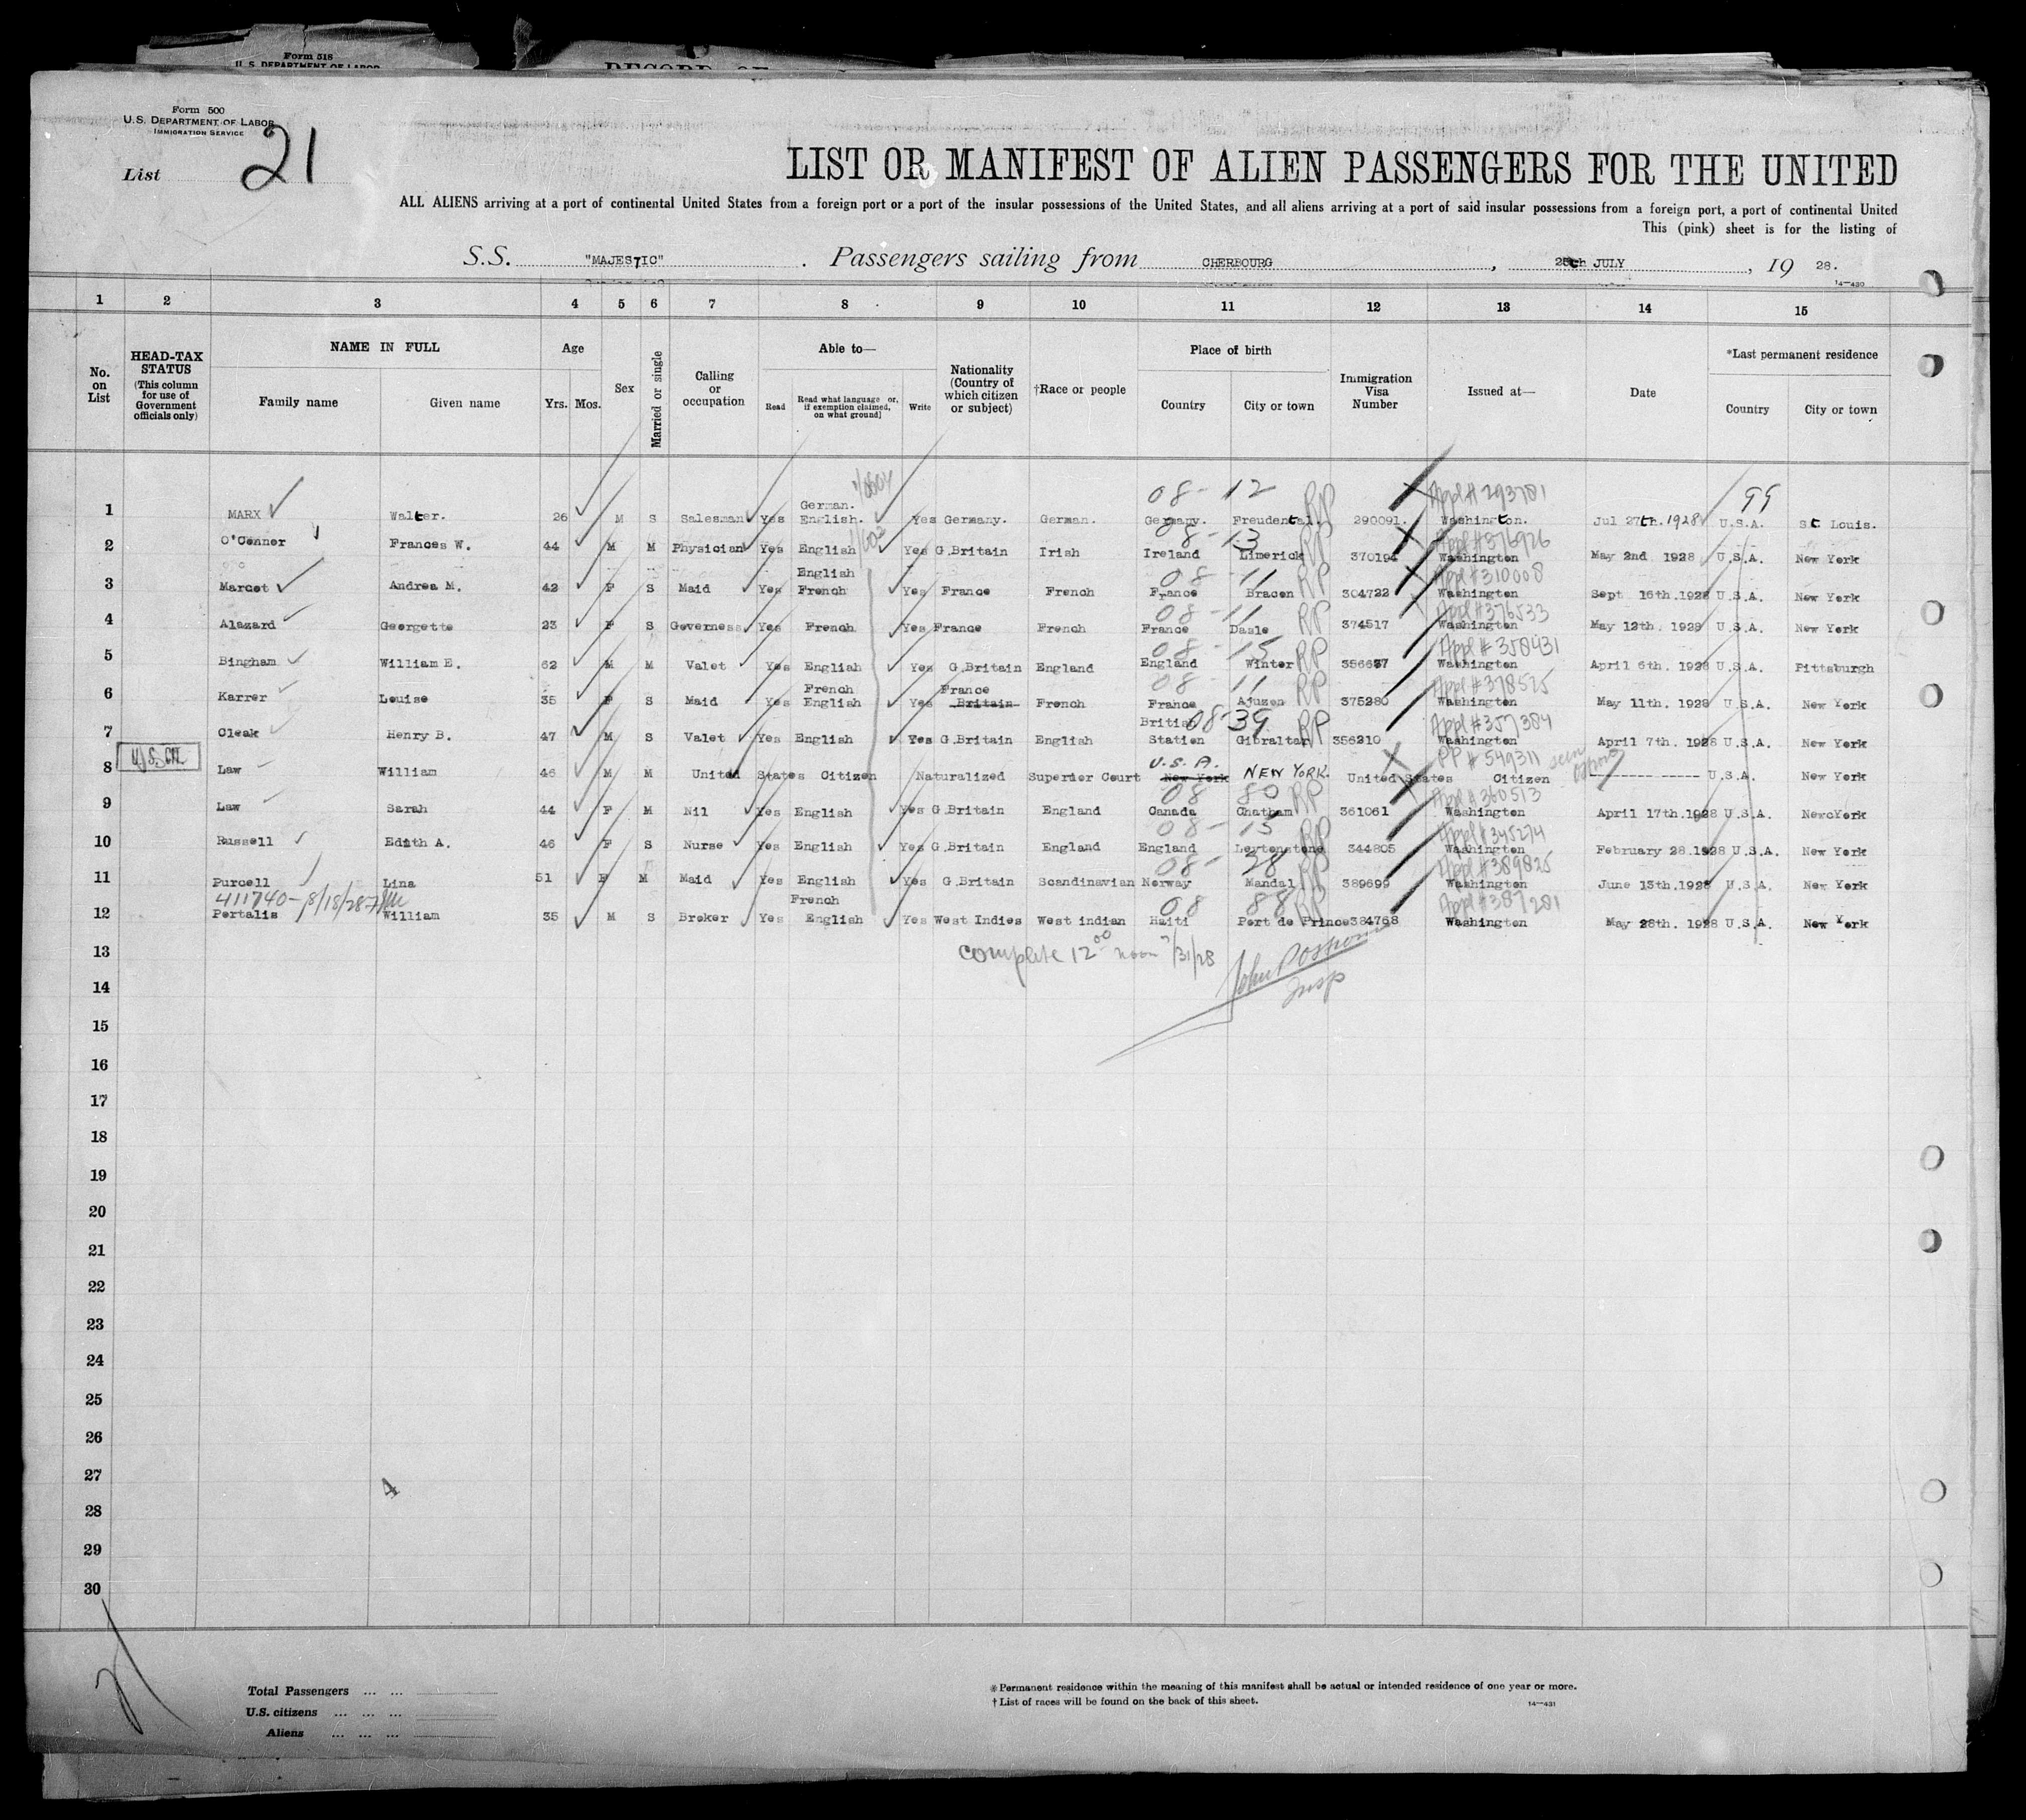 Form 518
U. S. DEPARTMENT OF LABOR
RECORD OF
Form 500
U.S. DEPARTMENT OF LABOR
IMMIGRATION SERVICE
List 21
LIST OR MANIFEST OF ALIEN PASSENGERS FOR THE UNITED
ALL ALIENS arriving at a port of continental United States from a foreign port or a port of the insular possessions of the United States, and all aliens arriving at a port of said insular possessions from a foreign port, a port of continental United
This (pink) sheet is for the listing of
S.S. "MAJESTIC". Passengers sailing from CHERBOURG, JULY, 19 28.
14—430
1 2 3 4 5 6 7 8 9 10 11 12 13 14 15
No. on List
HEAD-TAX STATUS (This column for use of Government officials only)
NAME IN FULL
Family name Given name
Age
Yrs. Mos.
Sex
Married or single
Calling or occupation
Able to—
Read Read what language or, if exemption claimed, on what ground] Write
Nationality (Country of which citizen or subject)
†Race or people
Place of birth
Country City or town
Immigration Visa Number
Issued at—
Date
*Last permanent residence
Country City or town
08-12 RP Appl # 293781 99
1 MARX Walter. 26 M S Salesman Yes German. English. Yes Germany. German. Germany. Freudental. 290091. Washington. Jul 27th. 1928 U.S.A. St Louis.
08-13 RP Appl # 376926
2 O'Connor Frances W. 44 M M Physician Yes English Yes G.Britain Irish Ireland Limerick 370194 Washington May 2nd. 1928 U.S.A. New York
08-11 RP Appl # 310008
3 Marcot Andrea M. 42 F S Maid Yes English French Yes France French France Bracon 304722 Washington Sept 16th. 192 U.S.A. New York
08-11 RP Appl # 376533
4 Alazard Georgette 23 F S Governess Yes French Yes France French France Dasle 374517 Washington May 12th. 1928 U.S.A. New York
08-15 RP Appl # 358431
5 Bingham William E. 62 M M Valet Yes English Yes G.Britain England England Winter 356687 Washington April 6th. 1928 U.S.A. Pittsburgh
08-11 RP Appl # 378525
6 Karrer Louise 35 F S Maid Yes French English Yes France Britain French France Ajuzen 375280 Washington May 11th. 1928 U.S.A. New York
08-39 RP Appl # 357384
7 Cleak Henry B. 47 M S Valet Yes English Yes G.Britain English British Station Gibraltar 356210 Washington April 7th. 1928 U.S.A. New York
U.S. Cit. U.S.A. PP # 549311 seen
8 Law William 46 M M United States Citizen Naturalized Superior Court New York NEW YORK. United States Citizen ---------- U.S.A. New York
08 80 RP Appl # 360513
9 Law Sarah 44 F M Nil Yes English Yes G Britain England Canada Chatham 361061 Washington April 17th.1928 U.S.A. NewcYork
08-15 RP Appl # 345274
10 Russell Edith A. 46 F S Nurse Yes English Yes G.Britain England England Leytonstone 344805 Washington February 28.1928 U.S.A. New York
08-28 RP Appl # 389825
11 Purcell Lina 51 F M Maid Yes English Yes G.Britain Scandinavian Norway Mandal 389699 Washington June 13th.1928 U.S.A. New York
411740-8/18/28
08 88 RP Appl # 387281
12 Portalis William 35 M S Broker Yes French English Yes West Indies West indian Haiti Port de Prince 384768 Washington May 28th. 1928 U.S.A. New York
13 complete 12 00 noon 7/31/28
14 Insp
15
16
17
18
19
20
21
22
23
24
25
26
27
4
28
29
30
21
Total Passengers ... ...
U.S. citizens ... ... ...
Aliens ... ... ...
* Permanent residence within the meaning of this manifest shall be actual or intended residence of one year or more.
† List of races will be found on the back of this sheet.
14—431